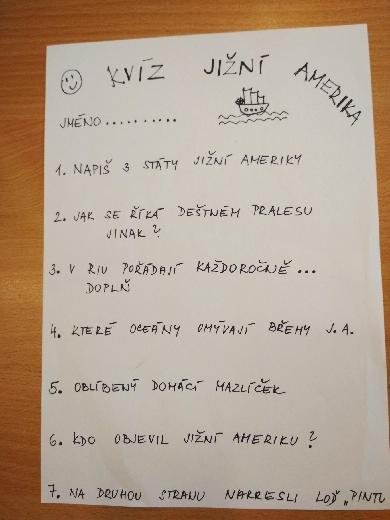 KVÍZ JIŽNÍ AMERIKA
JMÉNO..........
1. NAPIŠ 3 STÁTY JIŽNÍ AMERIKY
2. JAK SE ŘÍKÁ DEŠTNÉM PRALESU
JINAK?
3. V RIU POŘÁDAJÍ KAŽDOROČNĚ...
DOPLŇ
4. KTERÉ OCEÁNY OMÝVAJÍ BŘEHY J.A.
5. OBLÍBENÝ DOMÁCÍ MAZLÍČEK
6. KDO OBJEVIL JIŽNÍ AMERIKU?
7. NA DRUHOU STRANU NAKRESLI LOĎ „PINTU